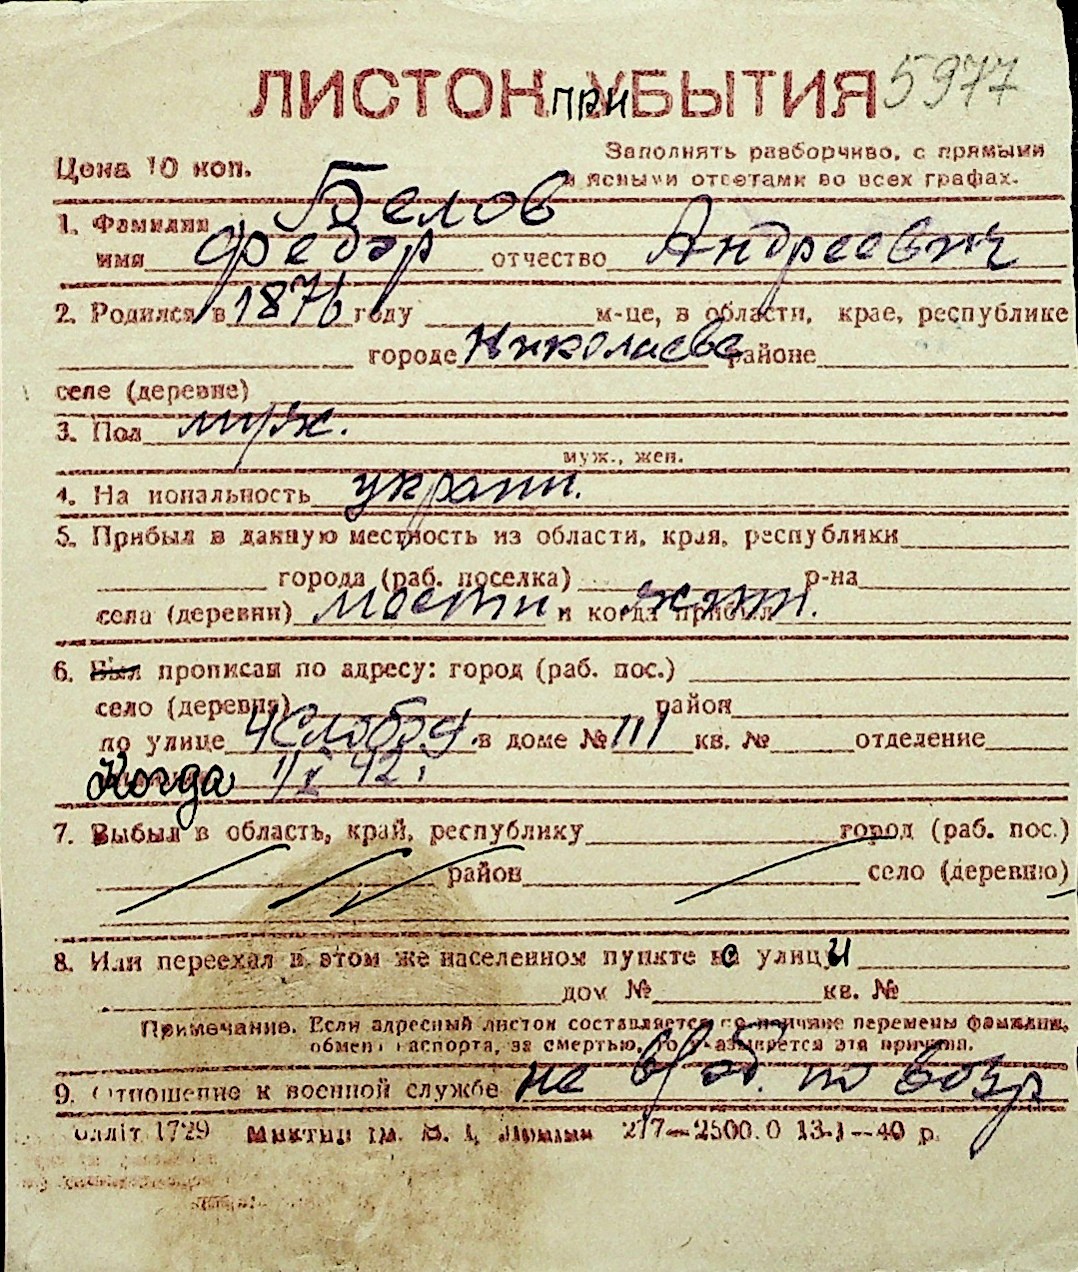 ЛИСТОК ПРИБЫТИЯ 5977
Цена 10 коп.
Заполнять разборчиво, с прямыми
и ясными ответами во всех графах.
1. Фамилия Белов
имя Федор отчество Андреевич
2. Родился в 1876 году м-це, в области, крае, республике
городе Николаеве районе
селе (деревне)
3. Пол муж.
муж., жен.
4. Национальность украин.
5. Прибыл в данную местность из области, края, республики
города (раб. поселка) р-на
села (деревни) местн. и когда прибыл жит.
6. Был прописан по адресу: город (раб. пос.)
село (деревня) район
по улице 4 Слобод. в доме № 111 кв. № отделение
Когда 1/X 42 г
7. Выбыл в область, край, республику город (раб. пос.)
район село (деревню)
8. Или переехал в этом же населенном пункте с улицы
дом № кв. №
Примечание. Если адресный листок составляется по причине перемены фамилии,
обмена паспорта, за смертью, то указывается эта причина.
9. Отношение к военной службе не в/об. по возр
олліт 1729 277—2500.0 13-I—40 р.